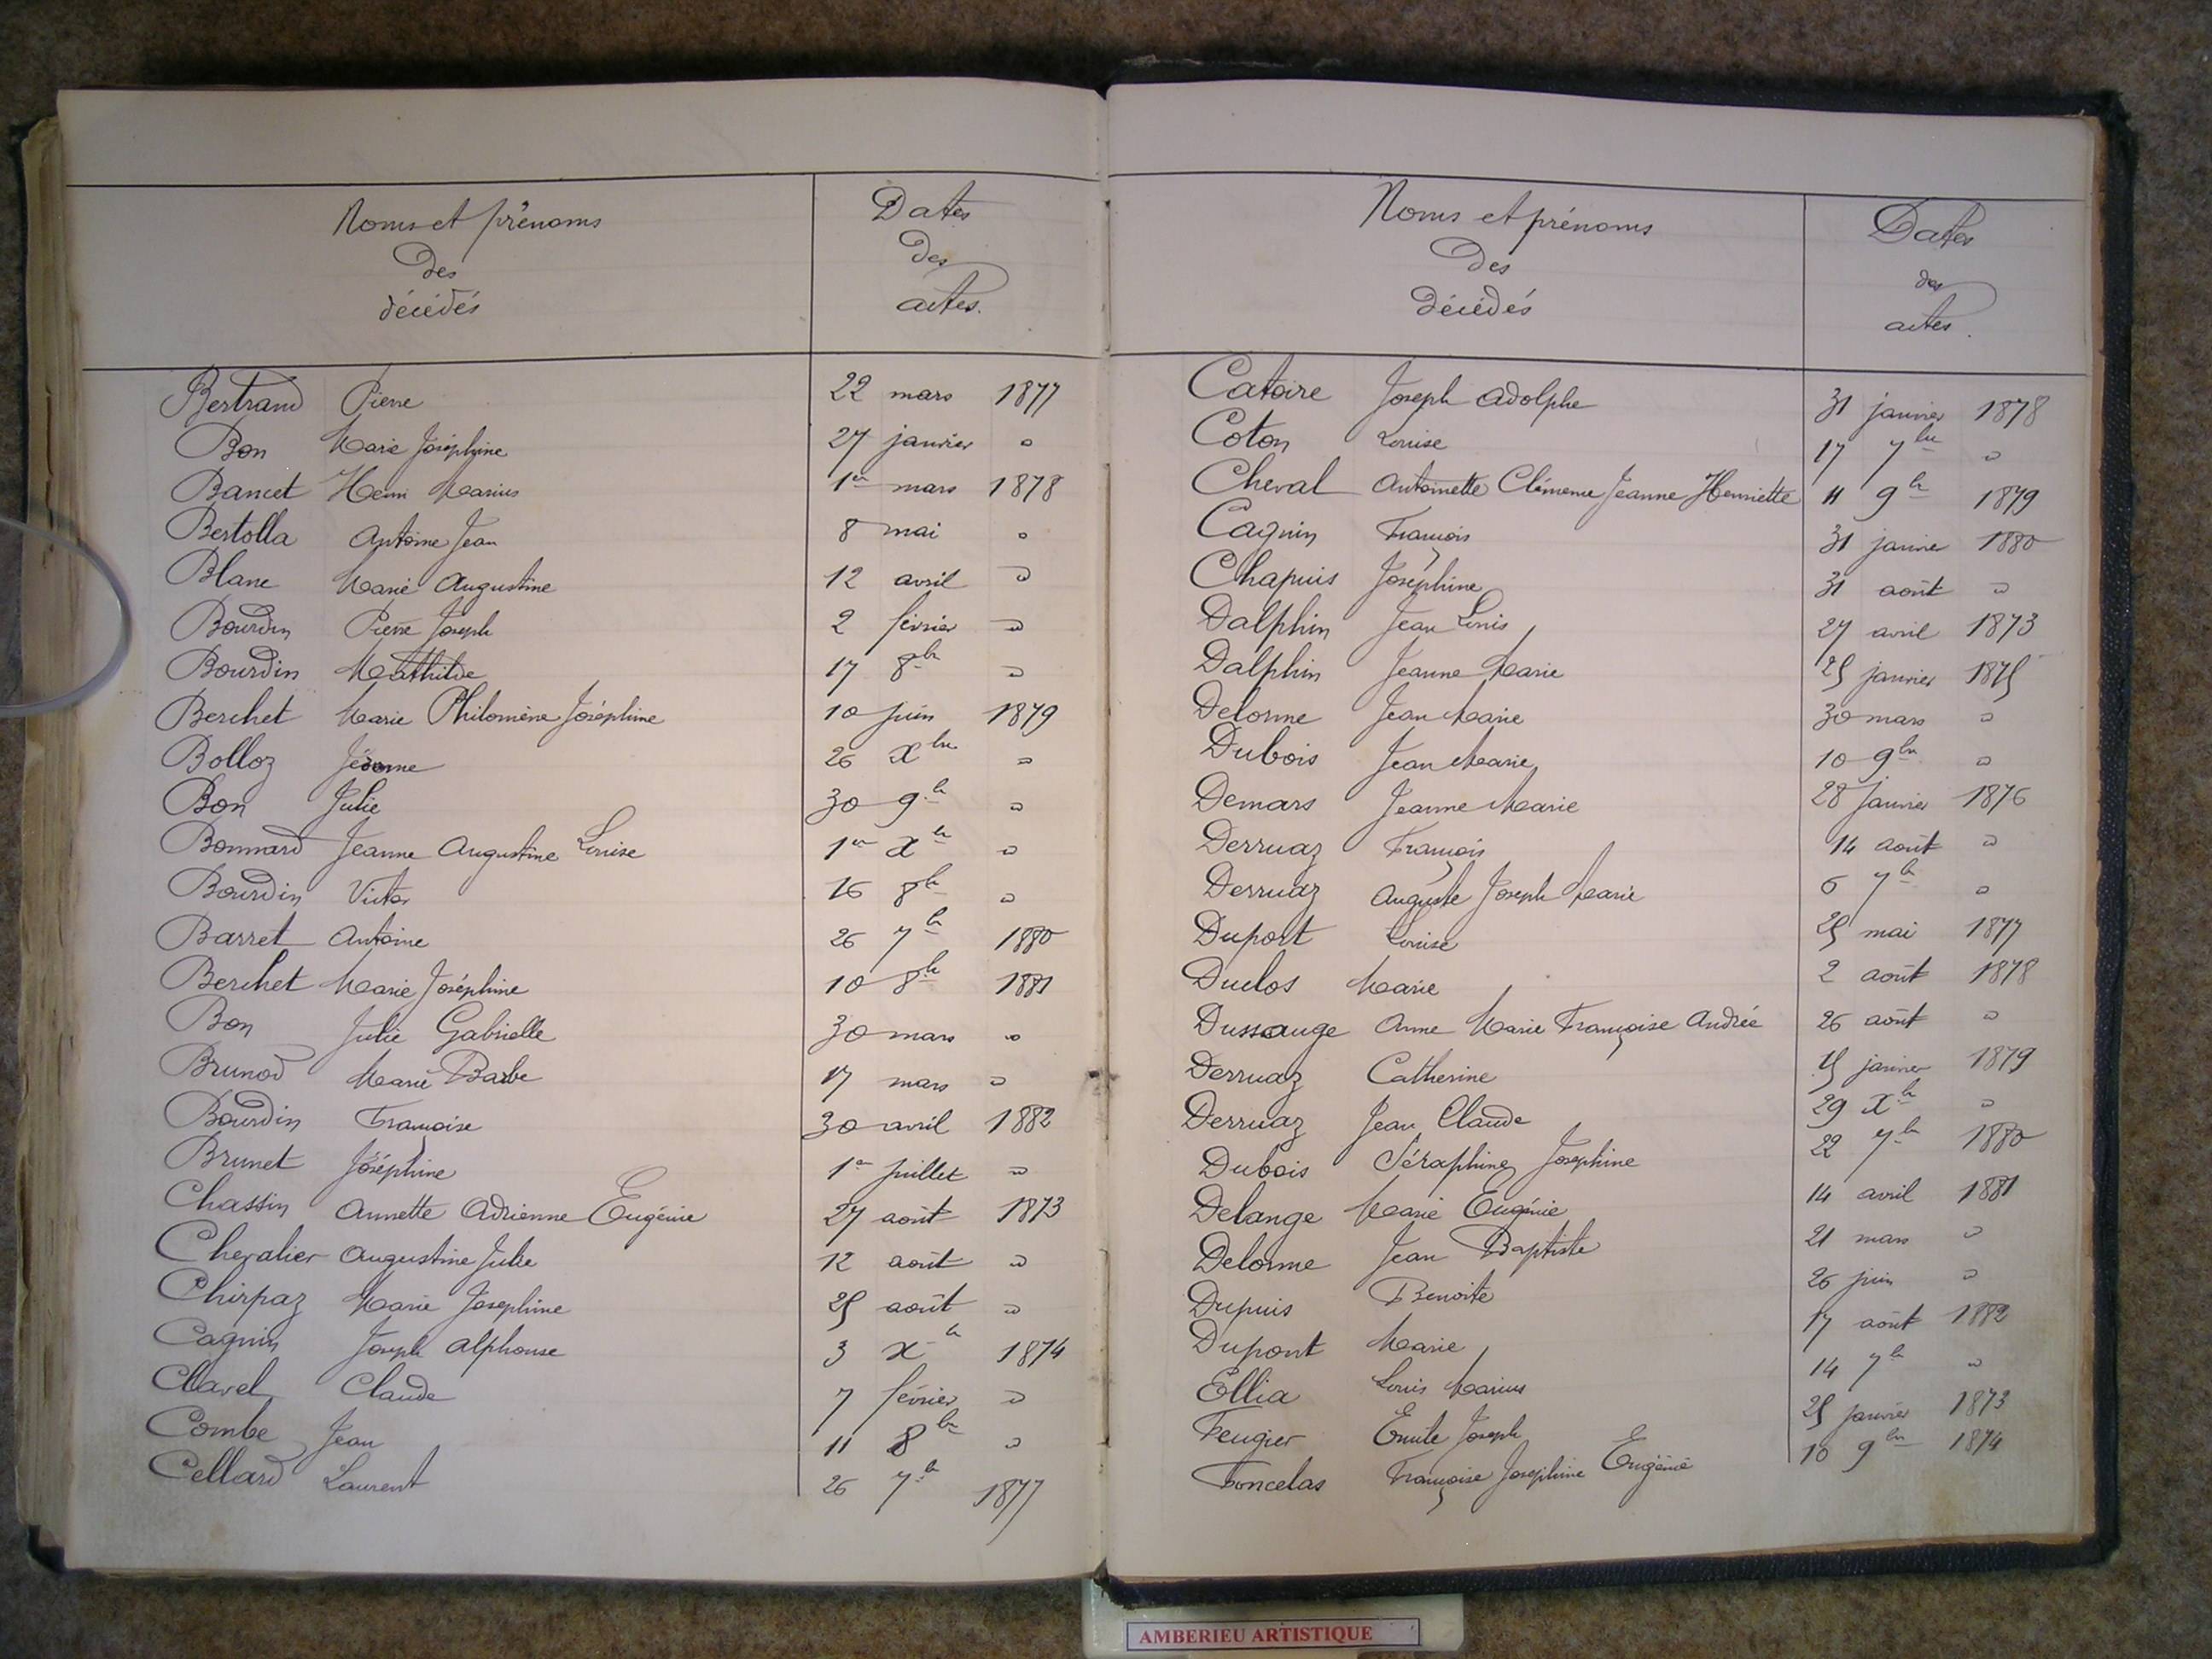 Noms et prénoms
des
décédés
Dates
des
actes.
Bertrand Pierre 22 mars 1877
Bon Marie Joséphine 27 janvier "
Bancet Henri Marius 1er mars 1878
Bertolla Antoine Jean 8 mai "
Blanc Marie Augustine 12 avril "
Bourdin Pierre Joseph 2 février "
Bourdin Mathilde 17 8bre "
Berchet Marie Philomène Joséphine 10 juin 1879
Bolloz Jérome 26 Xbre "
Bon Julie 30 9bre "
Bonnard Jeanne Augustine Louise 1er Xbre "
Bourdin Victor 16 8bre "
Barret Antoine 26 7bre 1880
Berchet Marie Joséphine 10 8bre 1881
Bon Julie Gabrielle 30 mars "
Brunod Marie Barbe 17 mars "
Bourdin Françoise 30 avril 1882
Brunet Joséphine 1er juillet "
Chassin Annette Adrienne Eugénie 27 août 1873
Chevalier Augustine Julie 12 août "
Chirpaz Marie Josephine 25 août "
Cagnin Joseph Alphonse 3 Xbre 1874
Clavel Claude 7 février "
Combe Jean 11 8bre "
Cellard Laurent 26 7bre 1877
Noms et prénoms
des
décédés
Dates
des
actes.
Catoire Joseph Adolphe 31 janvier 1878
Coton Louise 17 7bre "
Cheval Antoinette Clémence Jeanne Henriette 11 9bre 1879
Cagnin François 31 janvier 1880
Chapuis Joséphine 31 août "
Dalphin Jean Louis 27 avril 1873
Dalphin Jeanne Marie 25 janvier 1875
Delorme Jean Marie 30 mars "
Dubois Jean Marie 10 9bre "
Demars Jeanne Marie 28 janvier 1876
Derruaz François 14 août "
Derruaz Auguste Joseph Marie 6 7bre "
Duport Louise 25 mai 1877
Duclos Marie 2 août 1878
Dussauge Anne Marie Françoise Andrée 26 août "
Derruaz Catherine 15 janvier 1879
Derruaz Jean Claude 29 Xbre "
Dubois Séraphine Josephine 22 7bre 1880
Delange Marie Eugénie 14 avril 1881
Delorme Jean Baptiste 21 mars "
Dupuis Benoite 26 juin "
Dupont Marie 17 août 1882
Ellia Louis Marius 14 7bre "
Feugier Emile Joseph 25 janvier 1873
Foncelas Françoise Josephine Eugénie 10 9bre 1874
AMBERIEU ARTISTIQUE